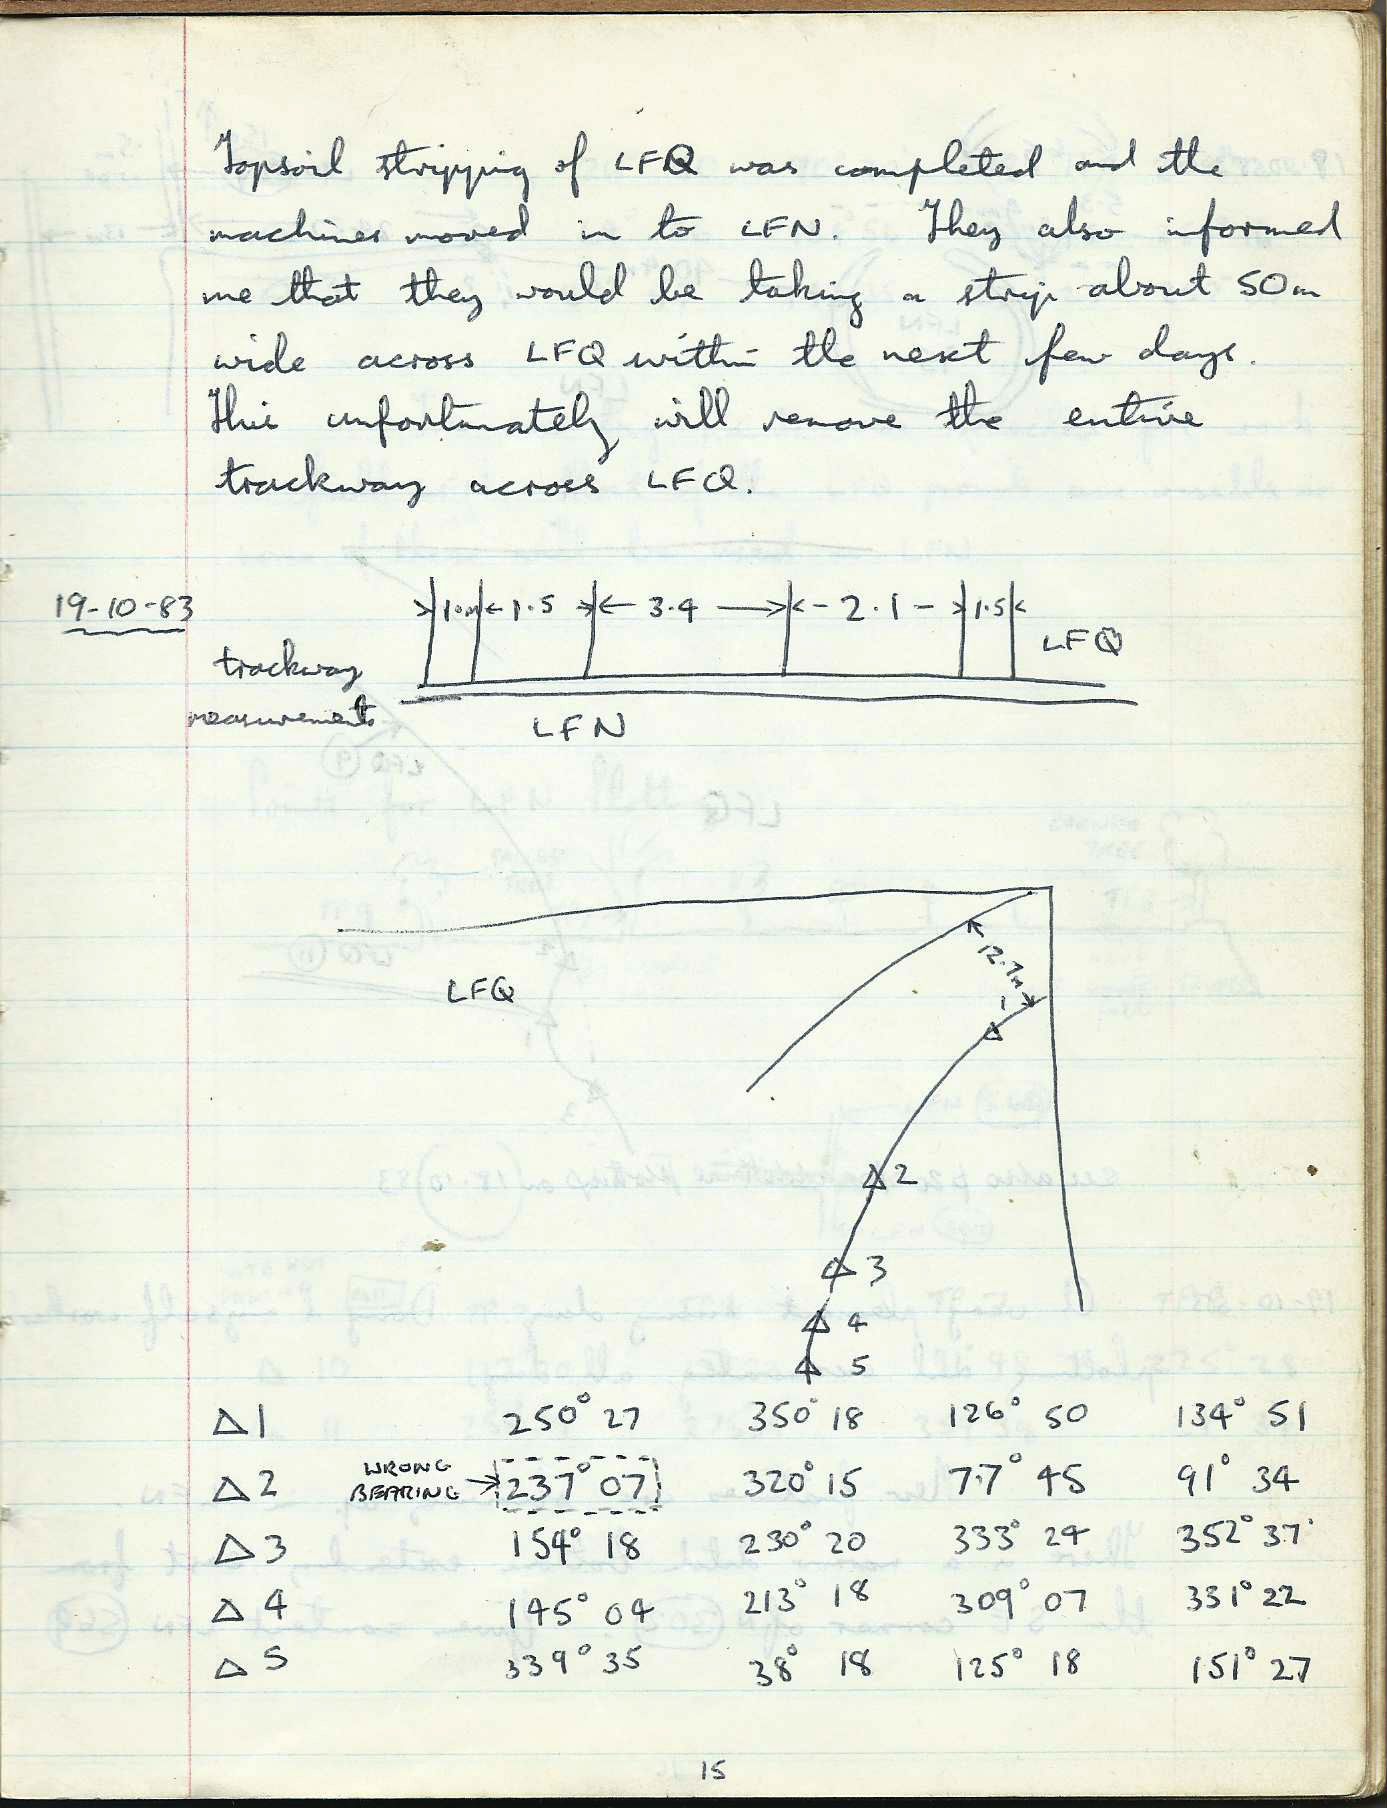 Topsoil stripping of LFQ was completed and the
machines moved in to LFN. They also informed
me that they would be taking a strip about 50m
wide across LFQ within the next few days.
This unfortunately will remove the entire
trackway across LFQ.
19-10-83
1·m 1·5 3·4 2·1 1·5
LFQ
trackway
measurements
LFN
12·7m
LFQ
1
Δ
Δ 2
Δ 3
Δ 4
Δ 5
Δ1 250° 27 350° 18 126° 50 134° 51
Δ2 WRONG BEARING 237° 07 320° 15 77° 45 91° 34
Δ3 154° 18 230° 20 333° 24 352° 37
Δ4 145° 04 213° 18 309° 07 331° 22
Δ5 339° 35 38° 18 125° 18 151° 27
15